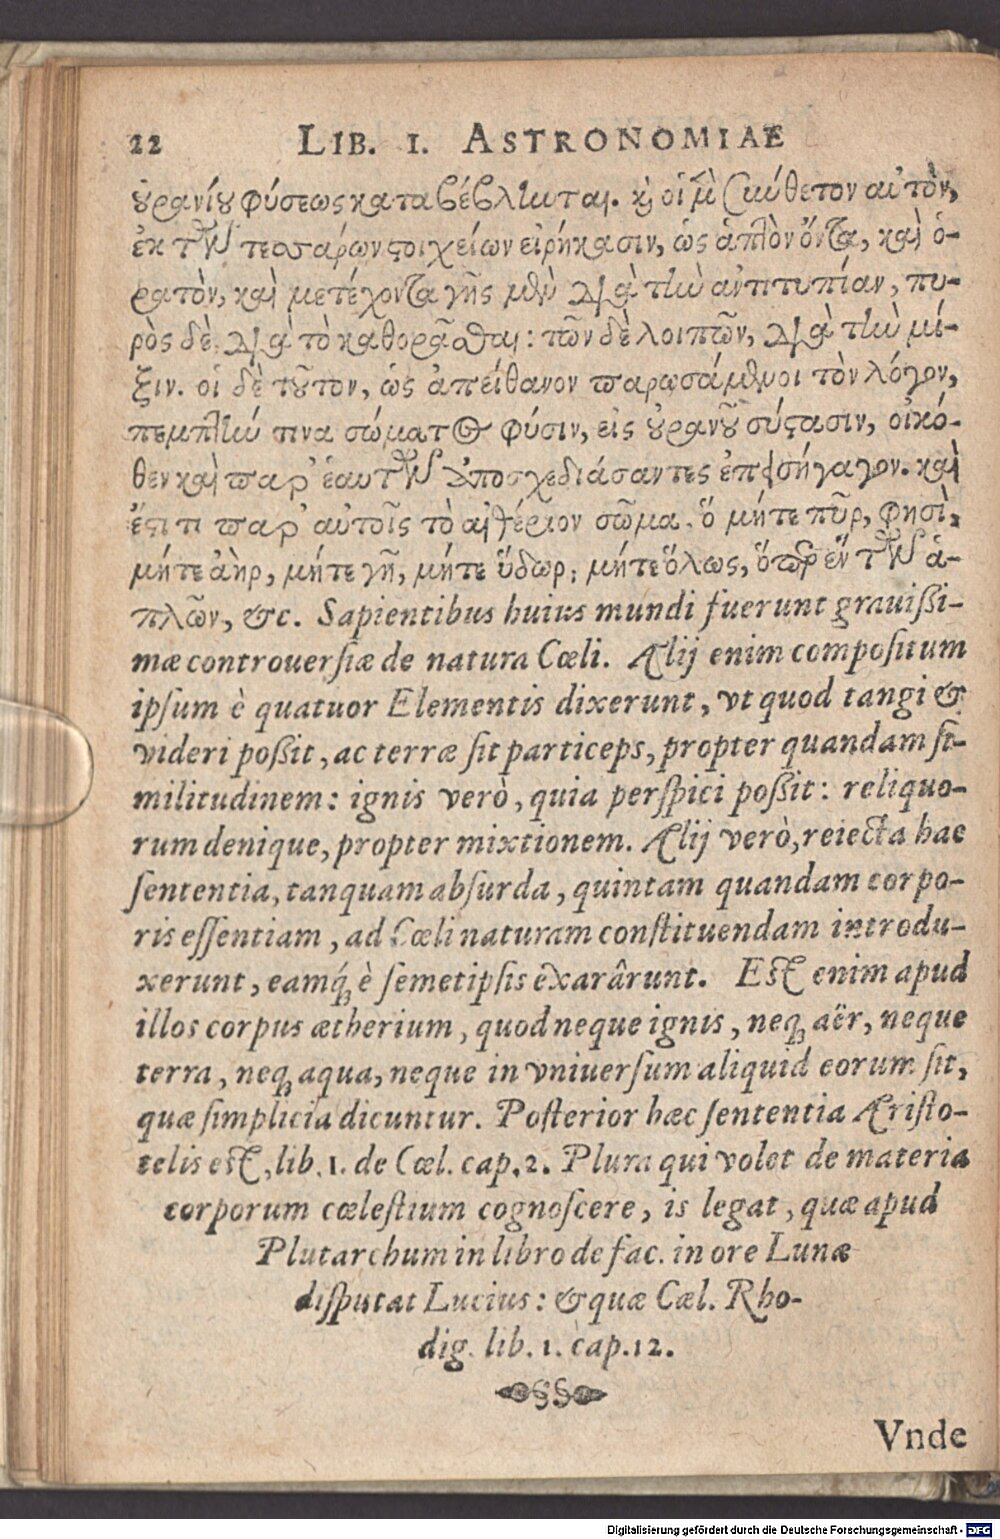 22 LIB. I. ASTRONOMIAE
ȣρανίȣ φύσεως καταβέβληται. κ̀ οἱ μὲν σύνθετον αὐτὸν,
ἐκ τῶν τεσσάρων ςοιχείων εἰρήκασιν, ὡς ἁπτὸν ὄντα, καὶ ὁ-
ρατὸν, καὶ μετέχοντα γῆς μὲν διὰ τὴν ἀντιτυπίαν, πυ-
ρὸς δὲ, διὰ τὸ καθορᾶσθαι: τῶν δὲ λοιπῶν, διὰ τὴν μί-
ξιν. οἱ δὲ τȣ͂τον, ὡς ἀπείθανον παρωσάμενοι τὸν λόγον,
πεμπτὴν τινα σώματος φύσιν, εἰς ȣρανȣ͂ σύςασιν, οἰκό-
θεν καὶ παρ' ἑαυτῶν ἀποσχεδιάσαντες ἐπεισήγαγον. καὶ
ἔςι τι παρ' αὐτοῖς τὸ αἰθέριον σῶμα. ὅ μήτε πῦρ, φησὶ,
μήτε ἀὴρ, μήτε γῆ, μήτε ὕδωρ, μήτε ὅλως, ὅπερ ἓν τῶν ἁ-
πλῶν, &c. Sapientibus huius mundi fuerunt grauißi-
mæ controuersiæ de natura Cœli. Alij enim compositum
ipsum è quatuor Elementis dixerunt, vt quod tangi &
videri poßit, ac terræ sit particeps, propter quandam si-
militudinem: ignis verò, quia perspici poßit: reliquo-
rum denique, propter mixtionem. Alij verò, reiecta hac
sententia, tanquam absurda, quintam quandam corpo-
ris essentiam, ad Cœli naturam constituendam introdu-
xerunt, eamq́; è semetipsis exarârunt. Est enim apud
illos corpus ætherium, quod neque ignis, neq; aër, neque
terra, neq; aqua, neque in vniuersum aliquid eorum sit,
quæ simplicia dicuntur. Posterior hæc sententia Aristo-
telis est, lib. 1. de Cœl. cap. 2. Plura qui volet de materia
corporum cœlestium cognoscere, is legat, quæ apud
Plutarchum in libro de fac. in ore Lunæ
disputat Lucius: & quæ Cæl. Rho-
dig. lib. 1. cap. 12.
Vnde
Digitalisierung gefördert durch die Deutsche Forschungsgemeinschaft - DFG